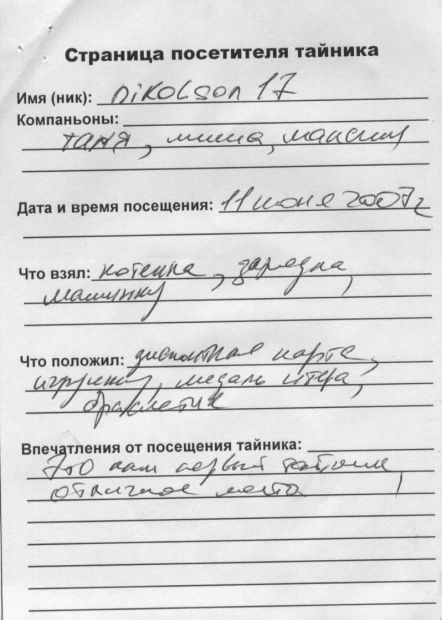 Страница посетителя тайника
Имя (ник): nikolson 17
Компаньоны:
таня, миша, максим
Дата и время посещения: 11 июня 2007г
Что взял: котенка, зарядка,
машинку
Что положил: дисконтная карта,
игрушку, медаль
браслетик
Впечатления от посещения тайника:
Это наш первый тайник,
отличное место